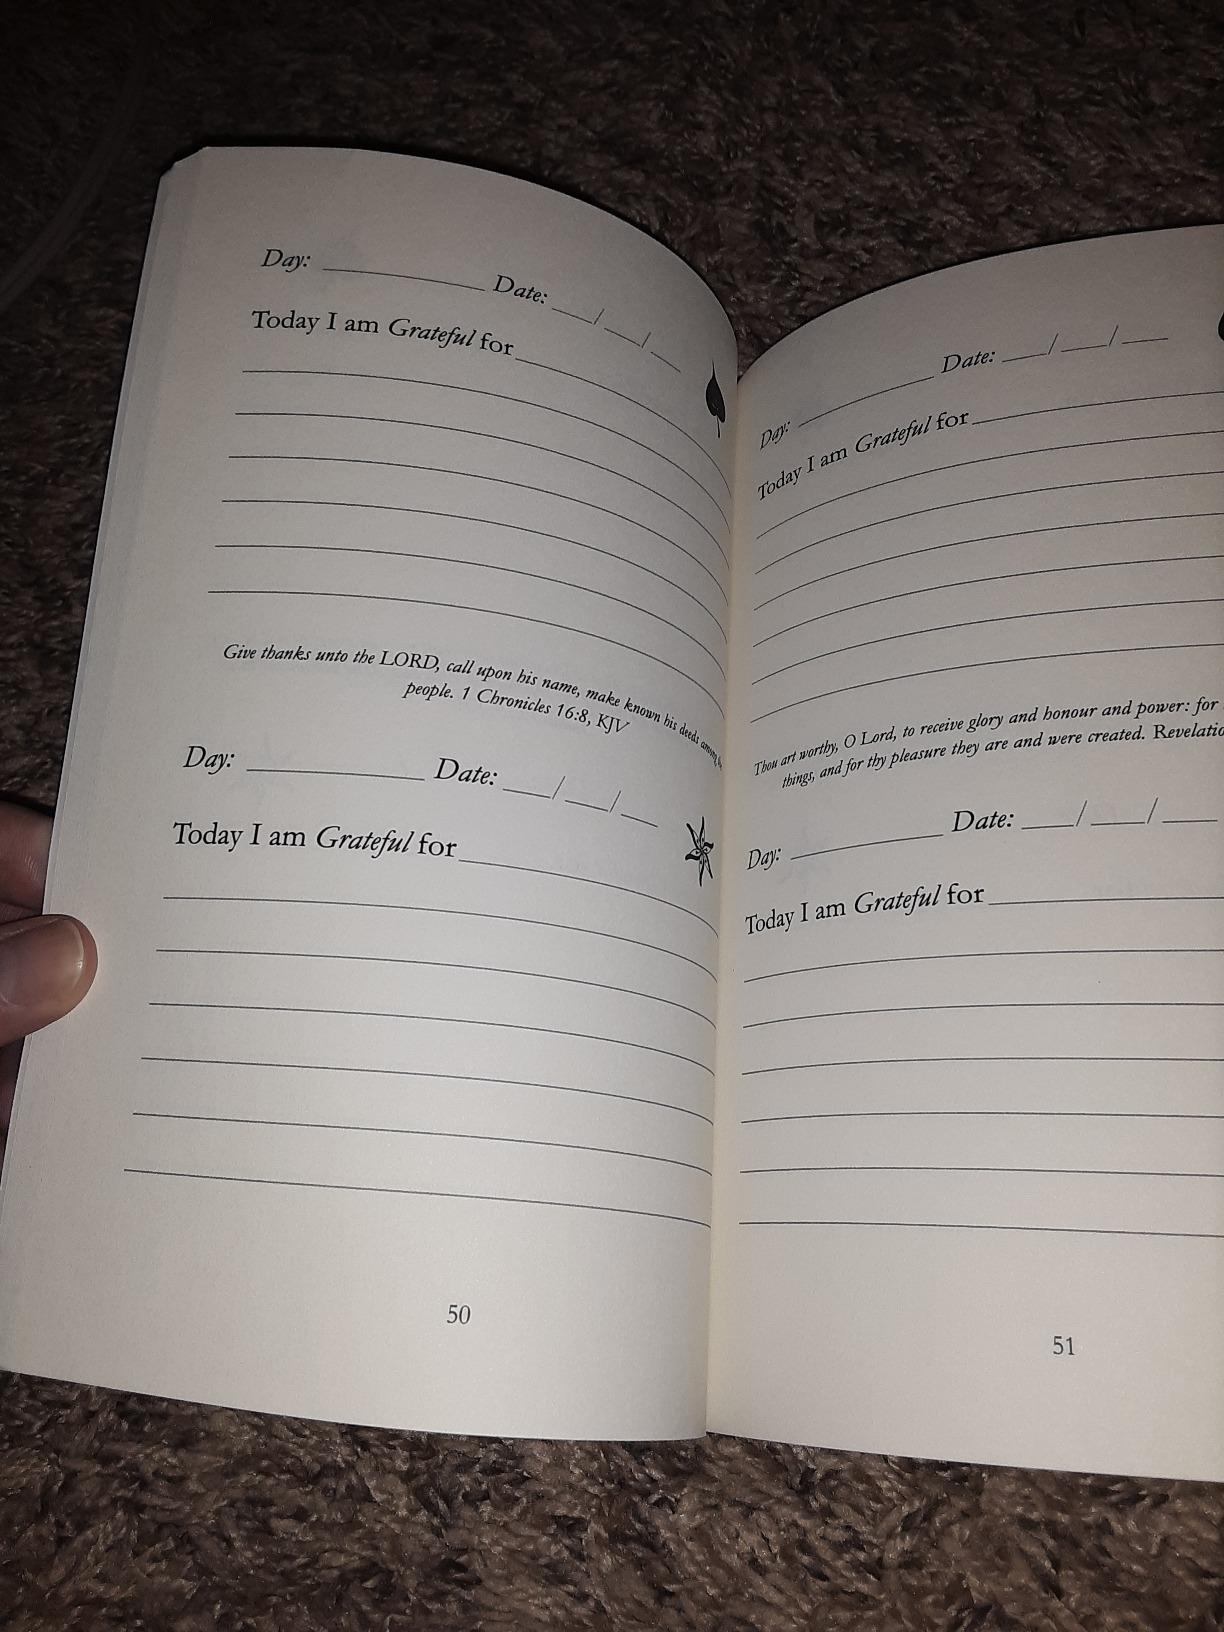 Day: ____________ Date: ___/___/___
Today I am Grateful for
Give thanks unto the LORD, call upon his name, make known his deeds among the
people. 1 Chronicles 16:8, KJV
Day: ____________ Date: ___/___/___
Today I am Grateful for
50
Day: ____________ Date: ___/___/___
Today I am Grateful for
Thou art worthy, O Lord, to receive glory and honour and power: for
things, and for thy pleasure they are and were created.
Day: ____________ Date: ___/___/___
Today I am Grateful for
51